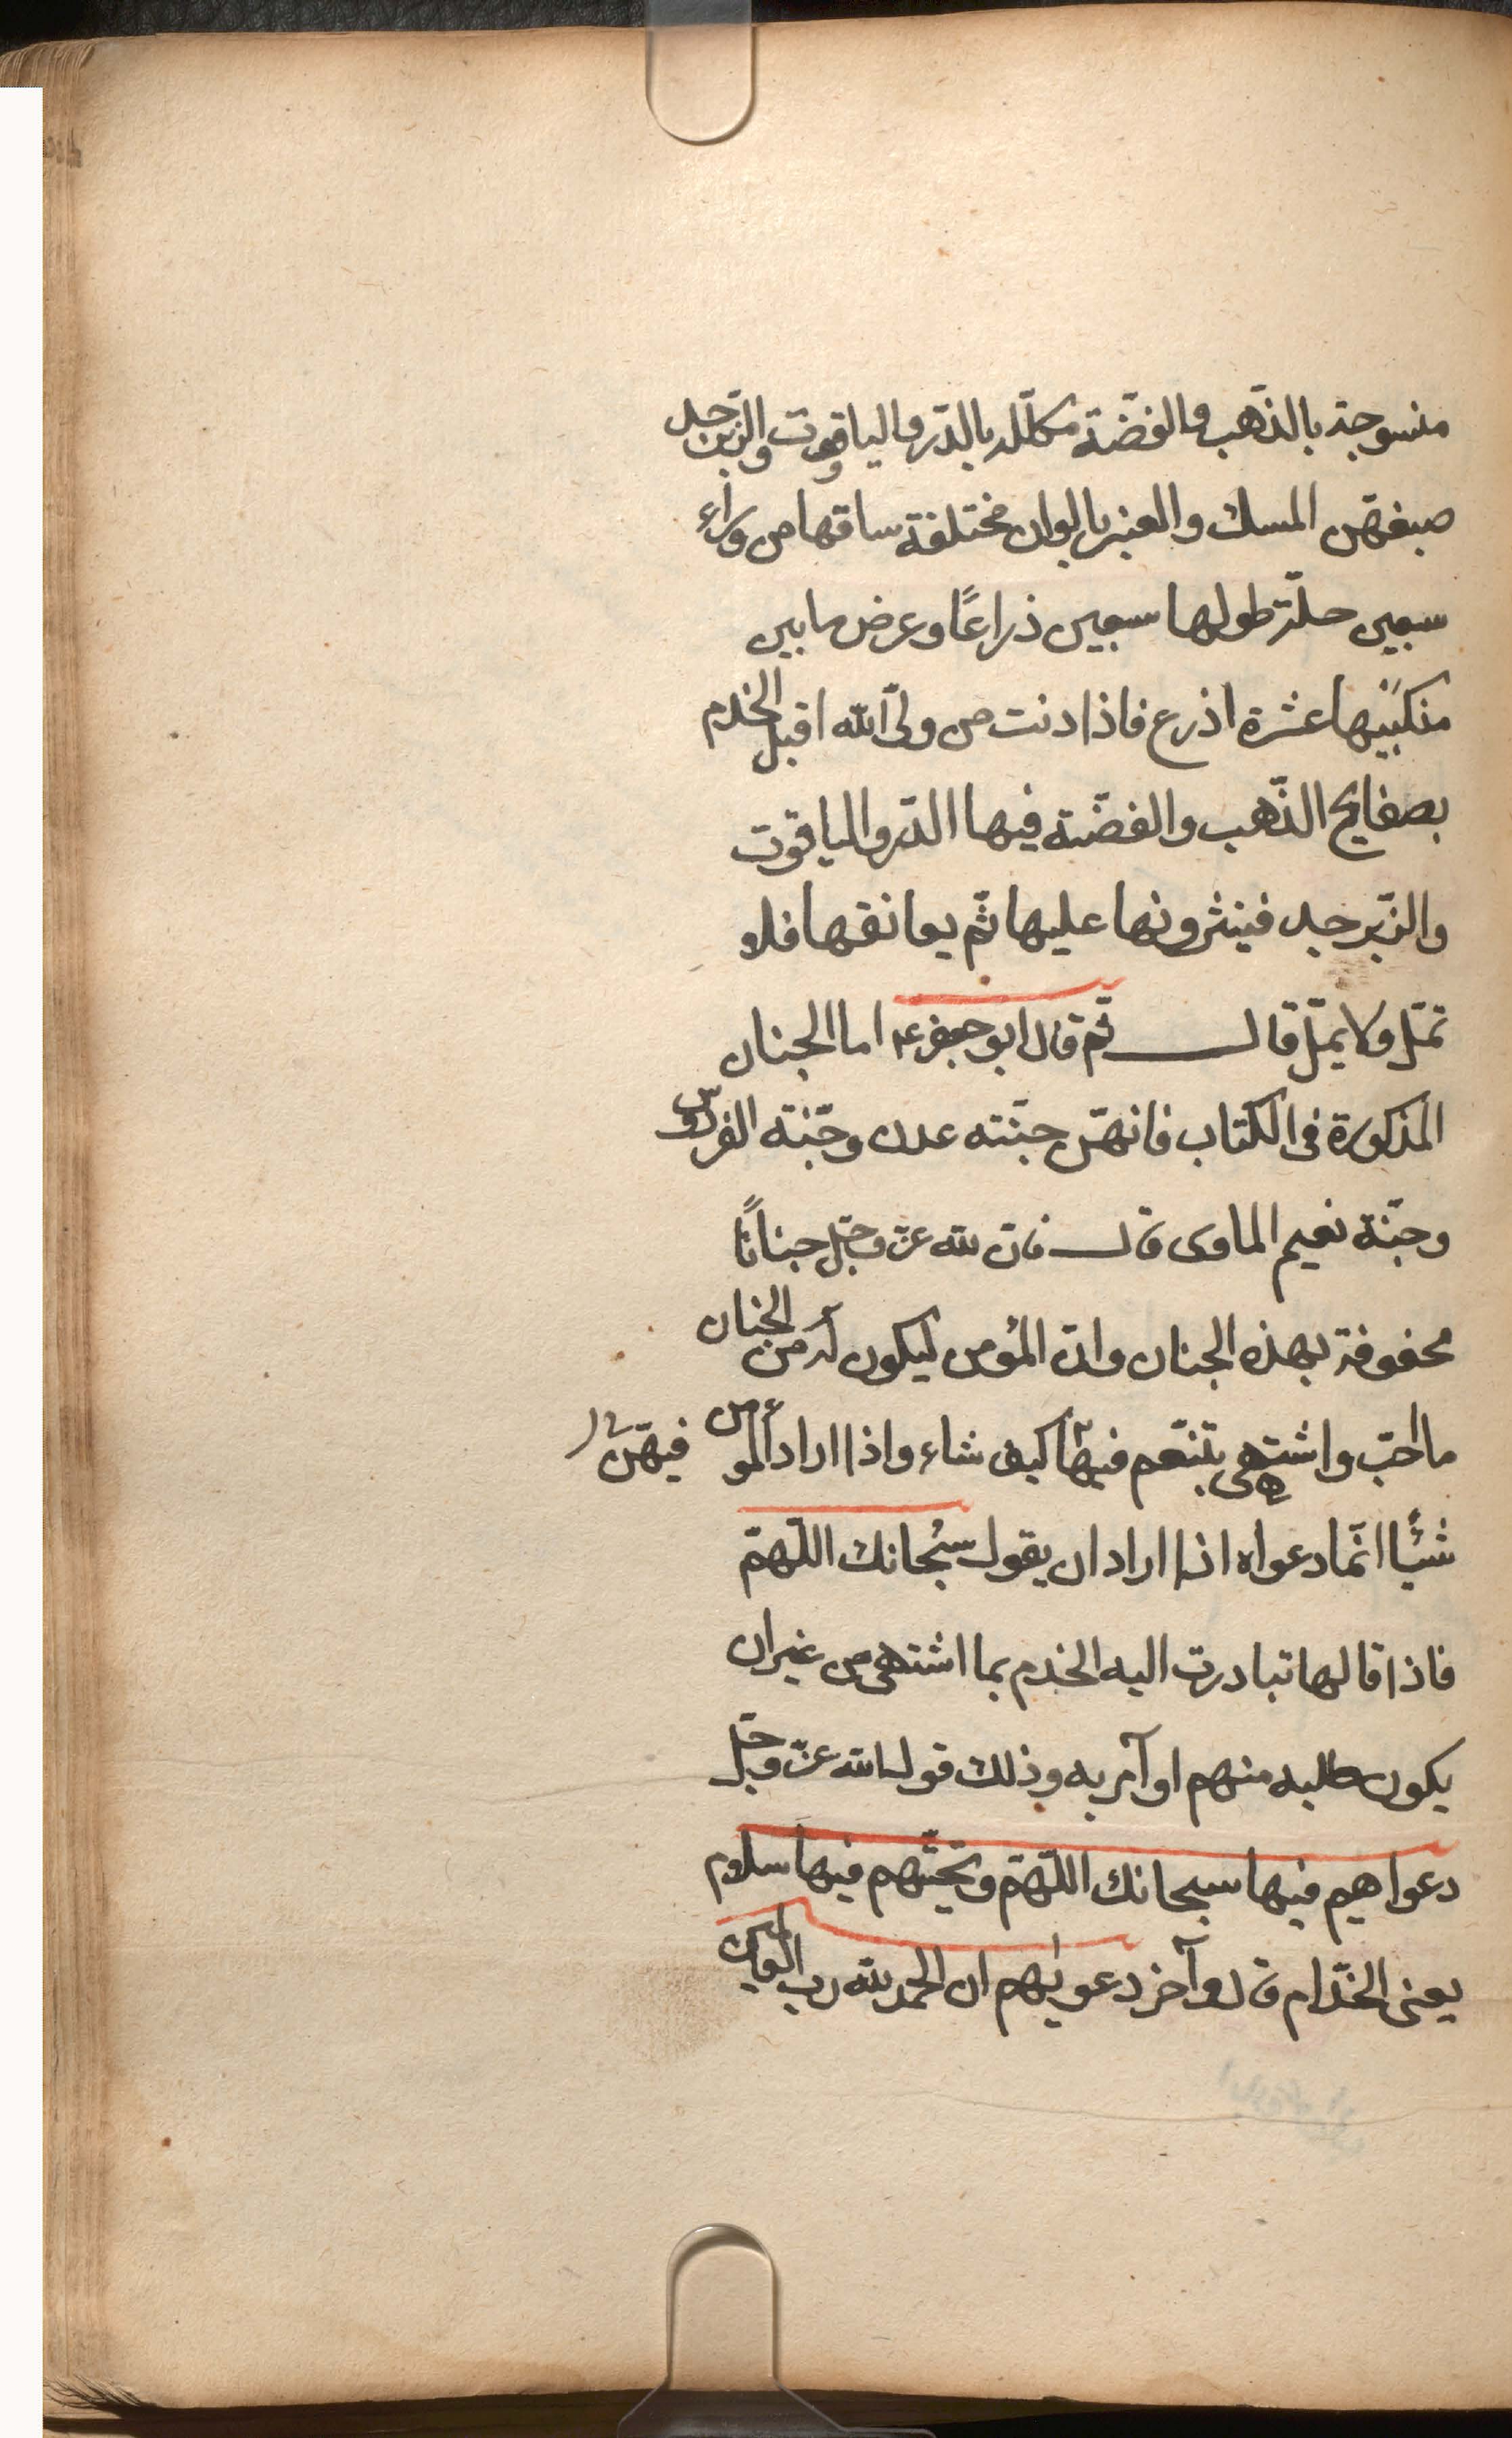 منسوجة بالذّهب والفضّة مكلّلة بالدّر والياقوت والزبرجد
صبغهّن المسك والعنبر بالوان مختلفة ساقها من وراء
سبعين حلّة طولها سبعين ذراعًا وعرض ما بين
منكبَيها عشرة اذرع فاذا دنت من ولىّ الله اقبل الخدم
بصفايح الذّهب والفضّة فيها الدّر والياقوت
والزّبرجد فينثرونها عليها ثّم يعانقها فلا
تملّ ولا يملّ قال ثم قال ابو جعفر ع اما الجنان
المذكورة فى الكتاب فانهّن جنّته عدن وجنّة الفردوس
وجنّة نعيم الماوى قال فان لله عزّ وجلّ جنانًا
محفوفة بهذه الجنان وانّ المؤمن ليكون له من الجنان
ما احبّ واشتهى يتنعّم فيها كيف شاء واذا اراد المؤمن
فيهّن
شئيًا انّما دعواه اذا اراد ان يقول سبُحانك اللّهمّ
فاذا قالها تبادرت اليه الخدم بما اشتهى من غير ان
يكون طلبه منهم او آمر به وذلك قول الله عزّ وجلّ
دعواهيم فيها سبحانك اللّهمّ وتحيّتهم فيها سلام
يعنى الخدّام قال وآخر دعويٰهم ان الحمد لله رب العالمين